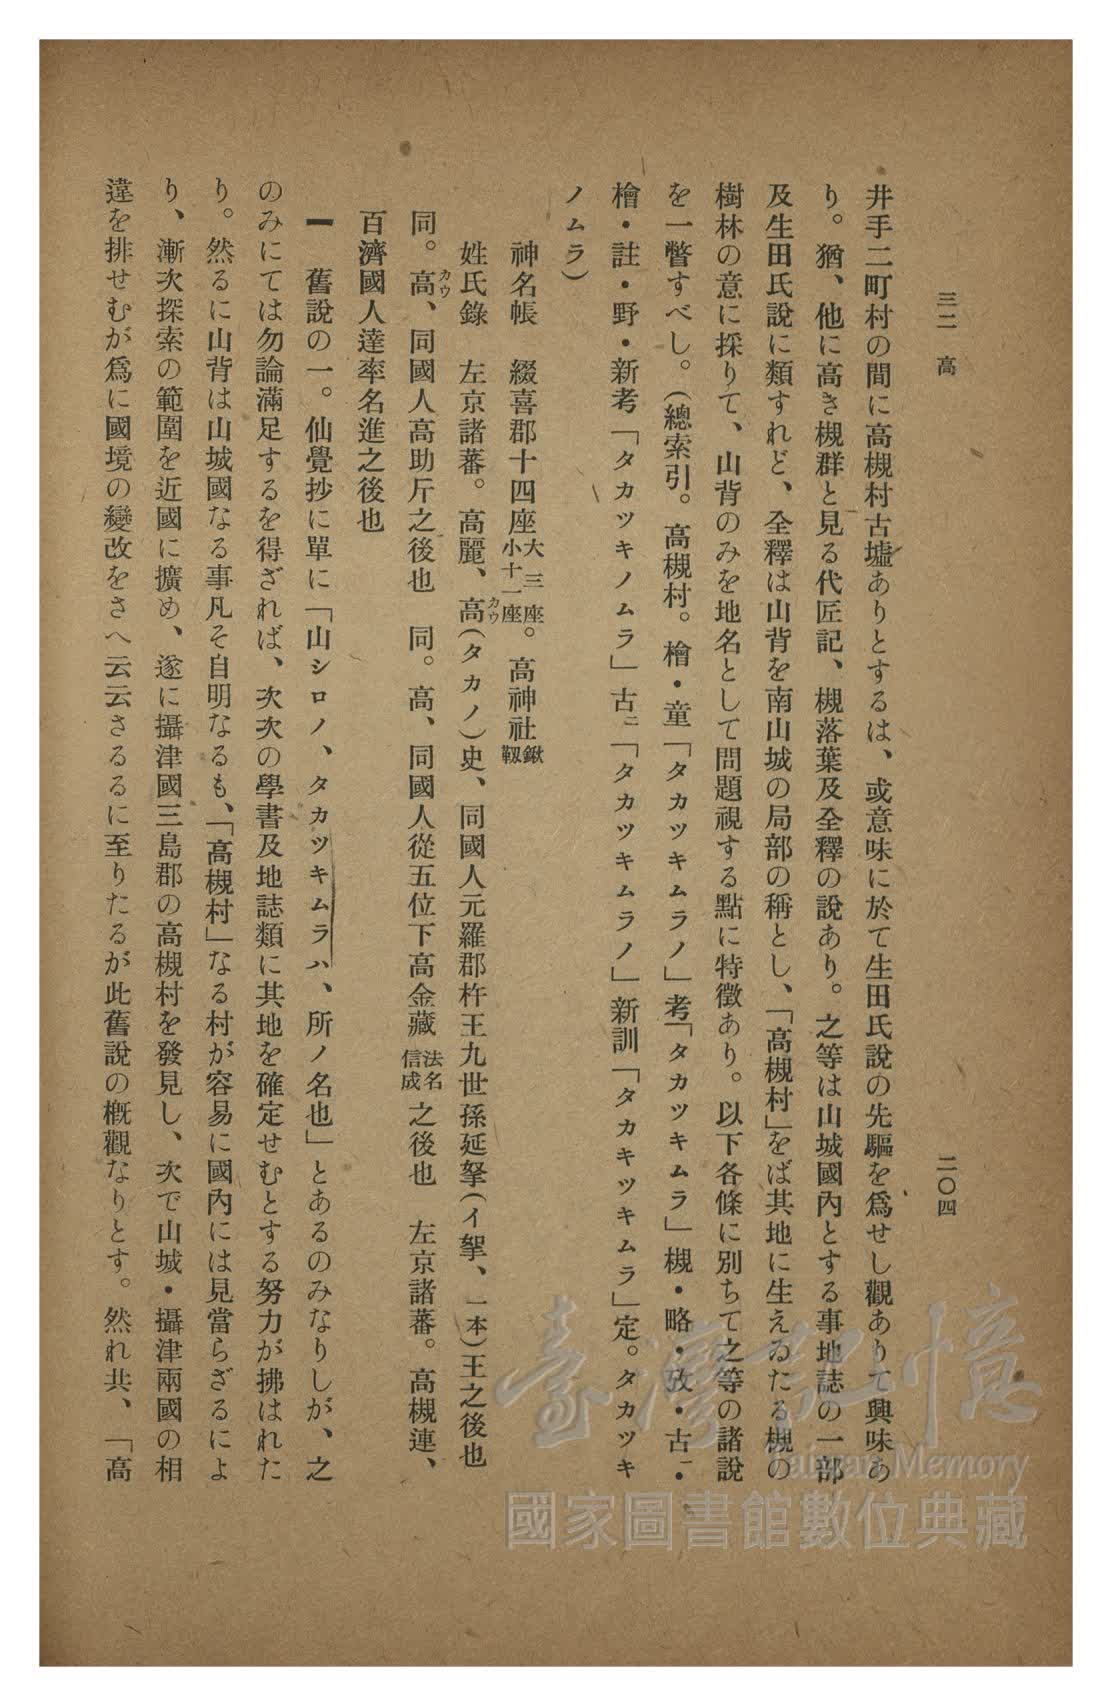 三二　高
二〇四
井手二町村の間に高槻村古墟ありとするは、或意味に於て生田氏說の先驅を爲せし觀ありて興味あ
り。猶、他に高き槻群と見る代匠記、槻落葉及全釋の說あり。之等は山城國內とする事地誌の一部
及生田氏說に類すれど、全釋は山背を南山城の局部の稱とし、「高槻村」をば其地に生えゐたる槻の
樹林の意に採りて、山背のみを地名として問題視する點に特徵あり。以下各條に別ちて之等の諸說
を一瞥すべし。(總索引。高槻村。檜・童「タカツキムラノ」考「タカツキムラ」槻・略・攷・古一・
檜・註・野・新考「タカツキノムラ」古二「タカツキムラノ」新訓「タカキツキムラ」定。タカツキ
ノムラ)
神名帳　綴喜郡十四座大三座小十一座。高神社鍬靱
姓氏錄　左京諸蕃。高麗、高カウ(タカノ)史、同國人元羅郡杵王九世孫延拏(イ挐、一本)王之後也
同。高カウ、同國人高助斤之後也　同。高、同國人從五位下高金藏法名信成之後也　左京諸蕃。高槻連、
百濟國人達率名進之後也
一　舊說の一。仙覺抄に單に「山シロノ、タカツキムラハ、所ノ名也」とあるのみなりしが、之
のみにては勿論滿足するを得ざれば、次次の學書及地誌類に其地を確定せむとする努力が拂はれた
り。然るに山背は山城國なる事凡そ自明なるも、「高槻村」なる村が容易に國內には見當らざるによ
り、漸次探索の範圍を近國に擴め、遂に攝津國三島郡の高槻村を發見し、次で山城・攝津兩國の相
違を排せむが爲に國境の變改をさへ云云さるるに至りたるが此舊說の槪觀なりとす。然れ共、「高
臺灣記憶
Taiwan Memory
國家圖書館數位典藏